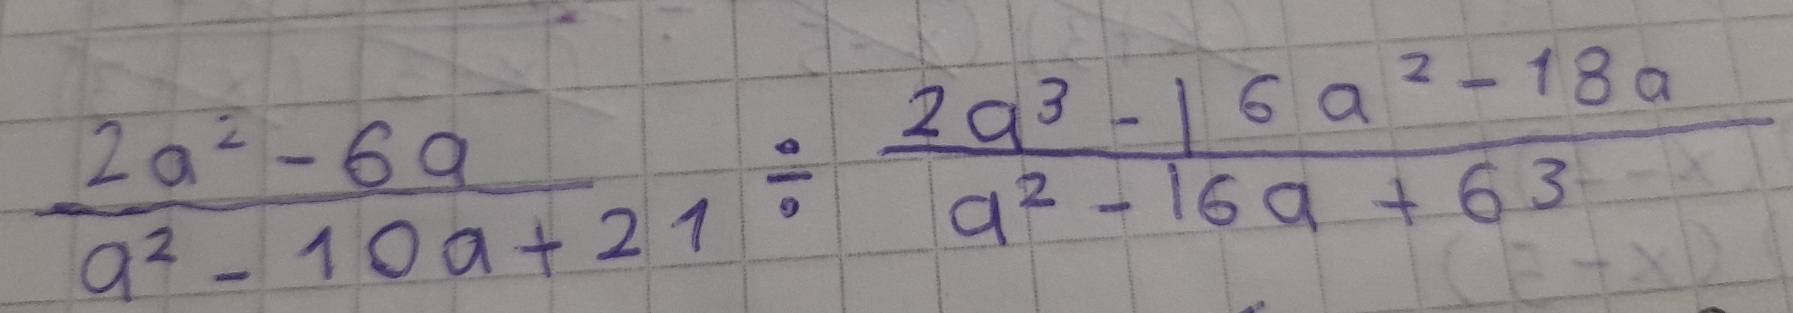 2a² - 6a / a² - 10a + 21 ÷ 2a³ - 16a² - 18a / a² - 16a + 63